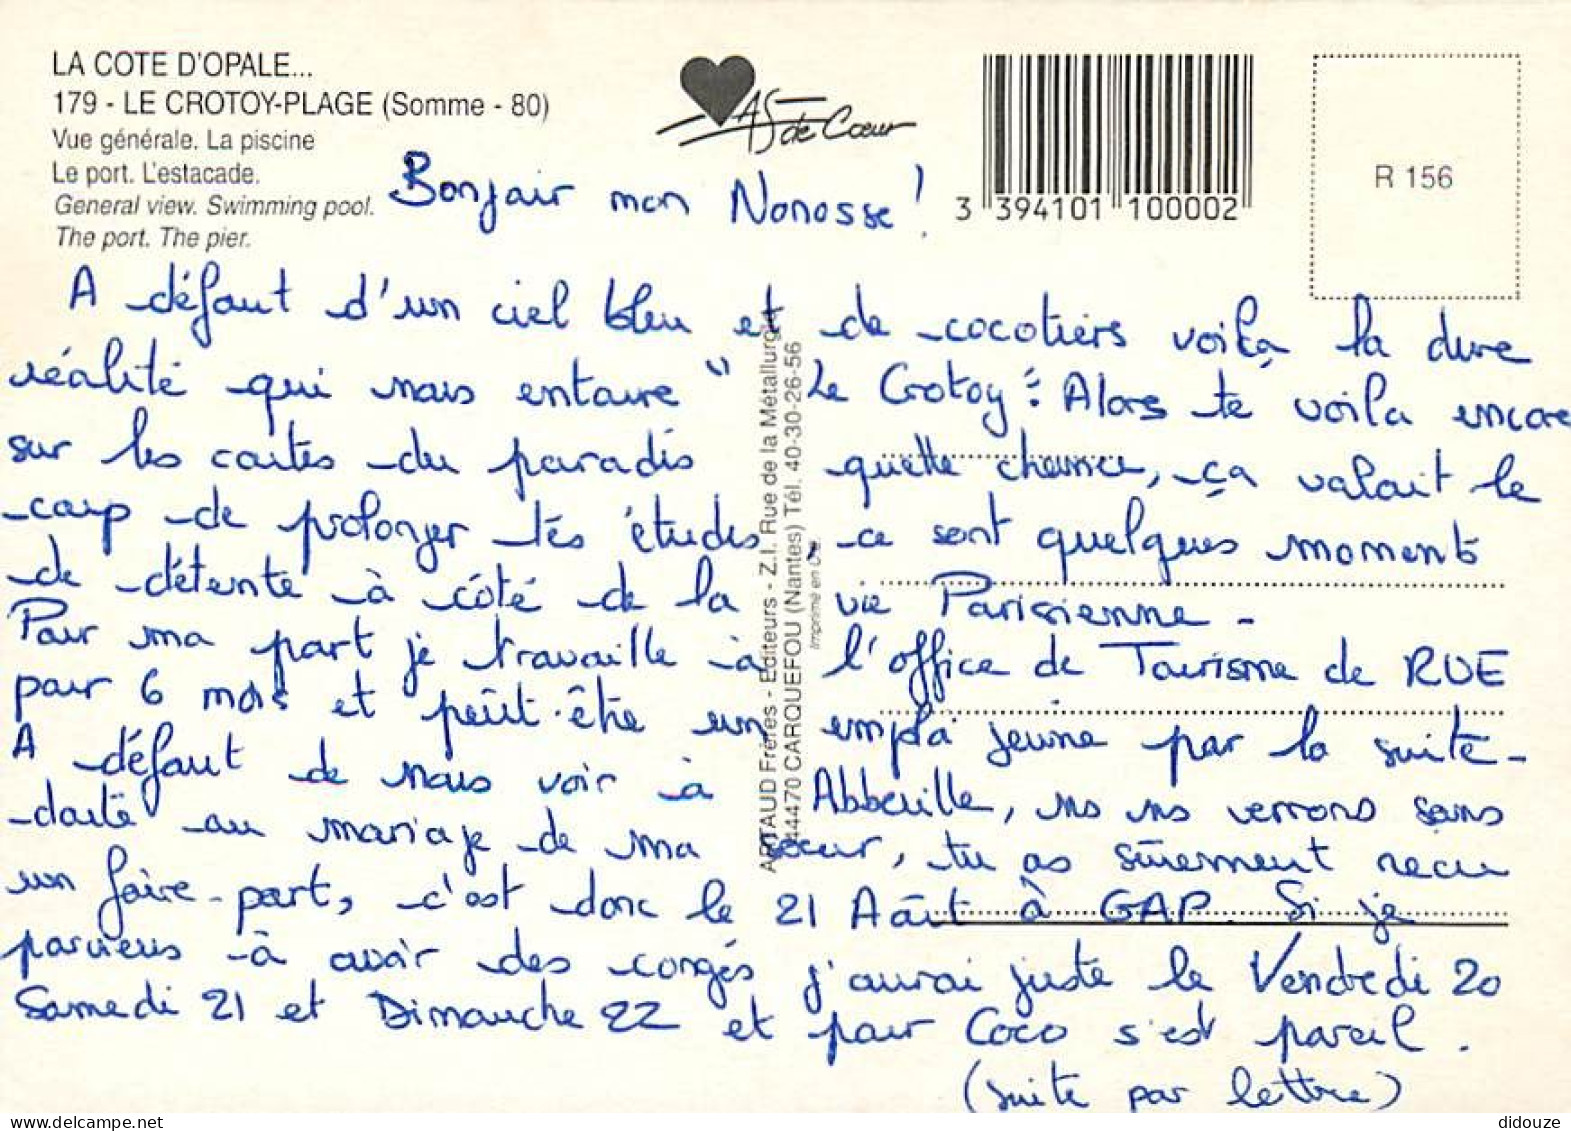 LA COTE D'OPALE...
179 - LE CROTOY-PLAGE (Somme - 80)
Vue générale. La piscine
Le port. L'estacade.
General view. Swimming pool.
The port. The pier.
AS de Cœur
3 394101 100002
R 156
Bonjour mon Nonosse !
A défaut d'un ciel bleu et de cocotiers voilà la dure
réalité qui nous entoure " Le Crotoy". Alors te voila encore
sur les cartes du paradis quelle chance, ça valait le
coup de prolonger tes études, ce sont quelques moments
de détente à côté de la vie Parisienne -
Pour ma part je travaille à l'office de Tourisme de RUE
pour 6 mois et peut-être un emploi jeune par la suite -
A défaut de nous voir à Abbeville, ns ns verrons sans
doute au mariage de ma soeur, tu as sûrement recu
un faire-part, c'est donc le 21 Août à GAP. Si je
parviens à avoir des congés j'aurai juste le Vendredi 20
Samedi 21 et Dimanche 22 et pour Coco s'est pareil.
(suite par lettre)
ARTAUD Frères - Editeurs - Z.I. Rue de la Métallurgie
44470 CARQUEFOU (Nantes) Tél. 40-30-26-56
Imprimé en U.E.
didouze